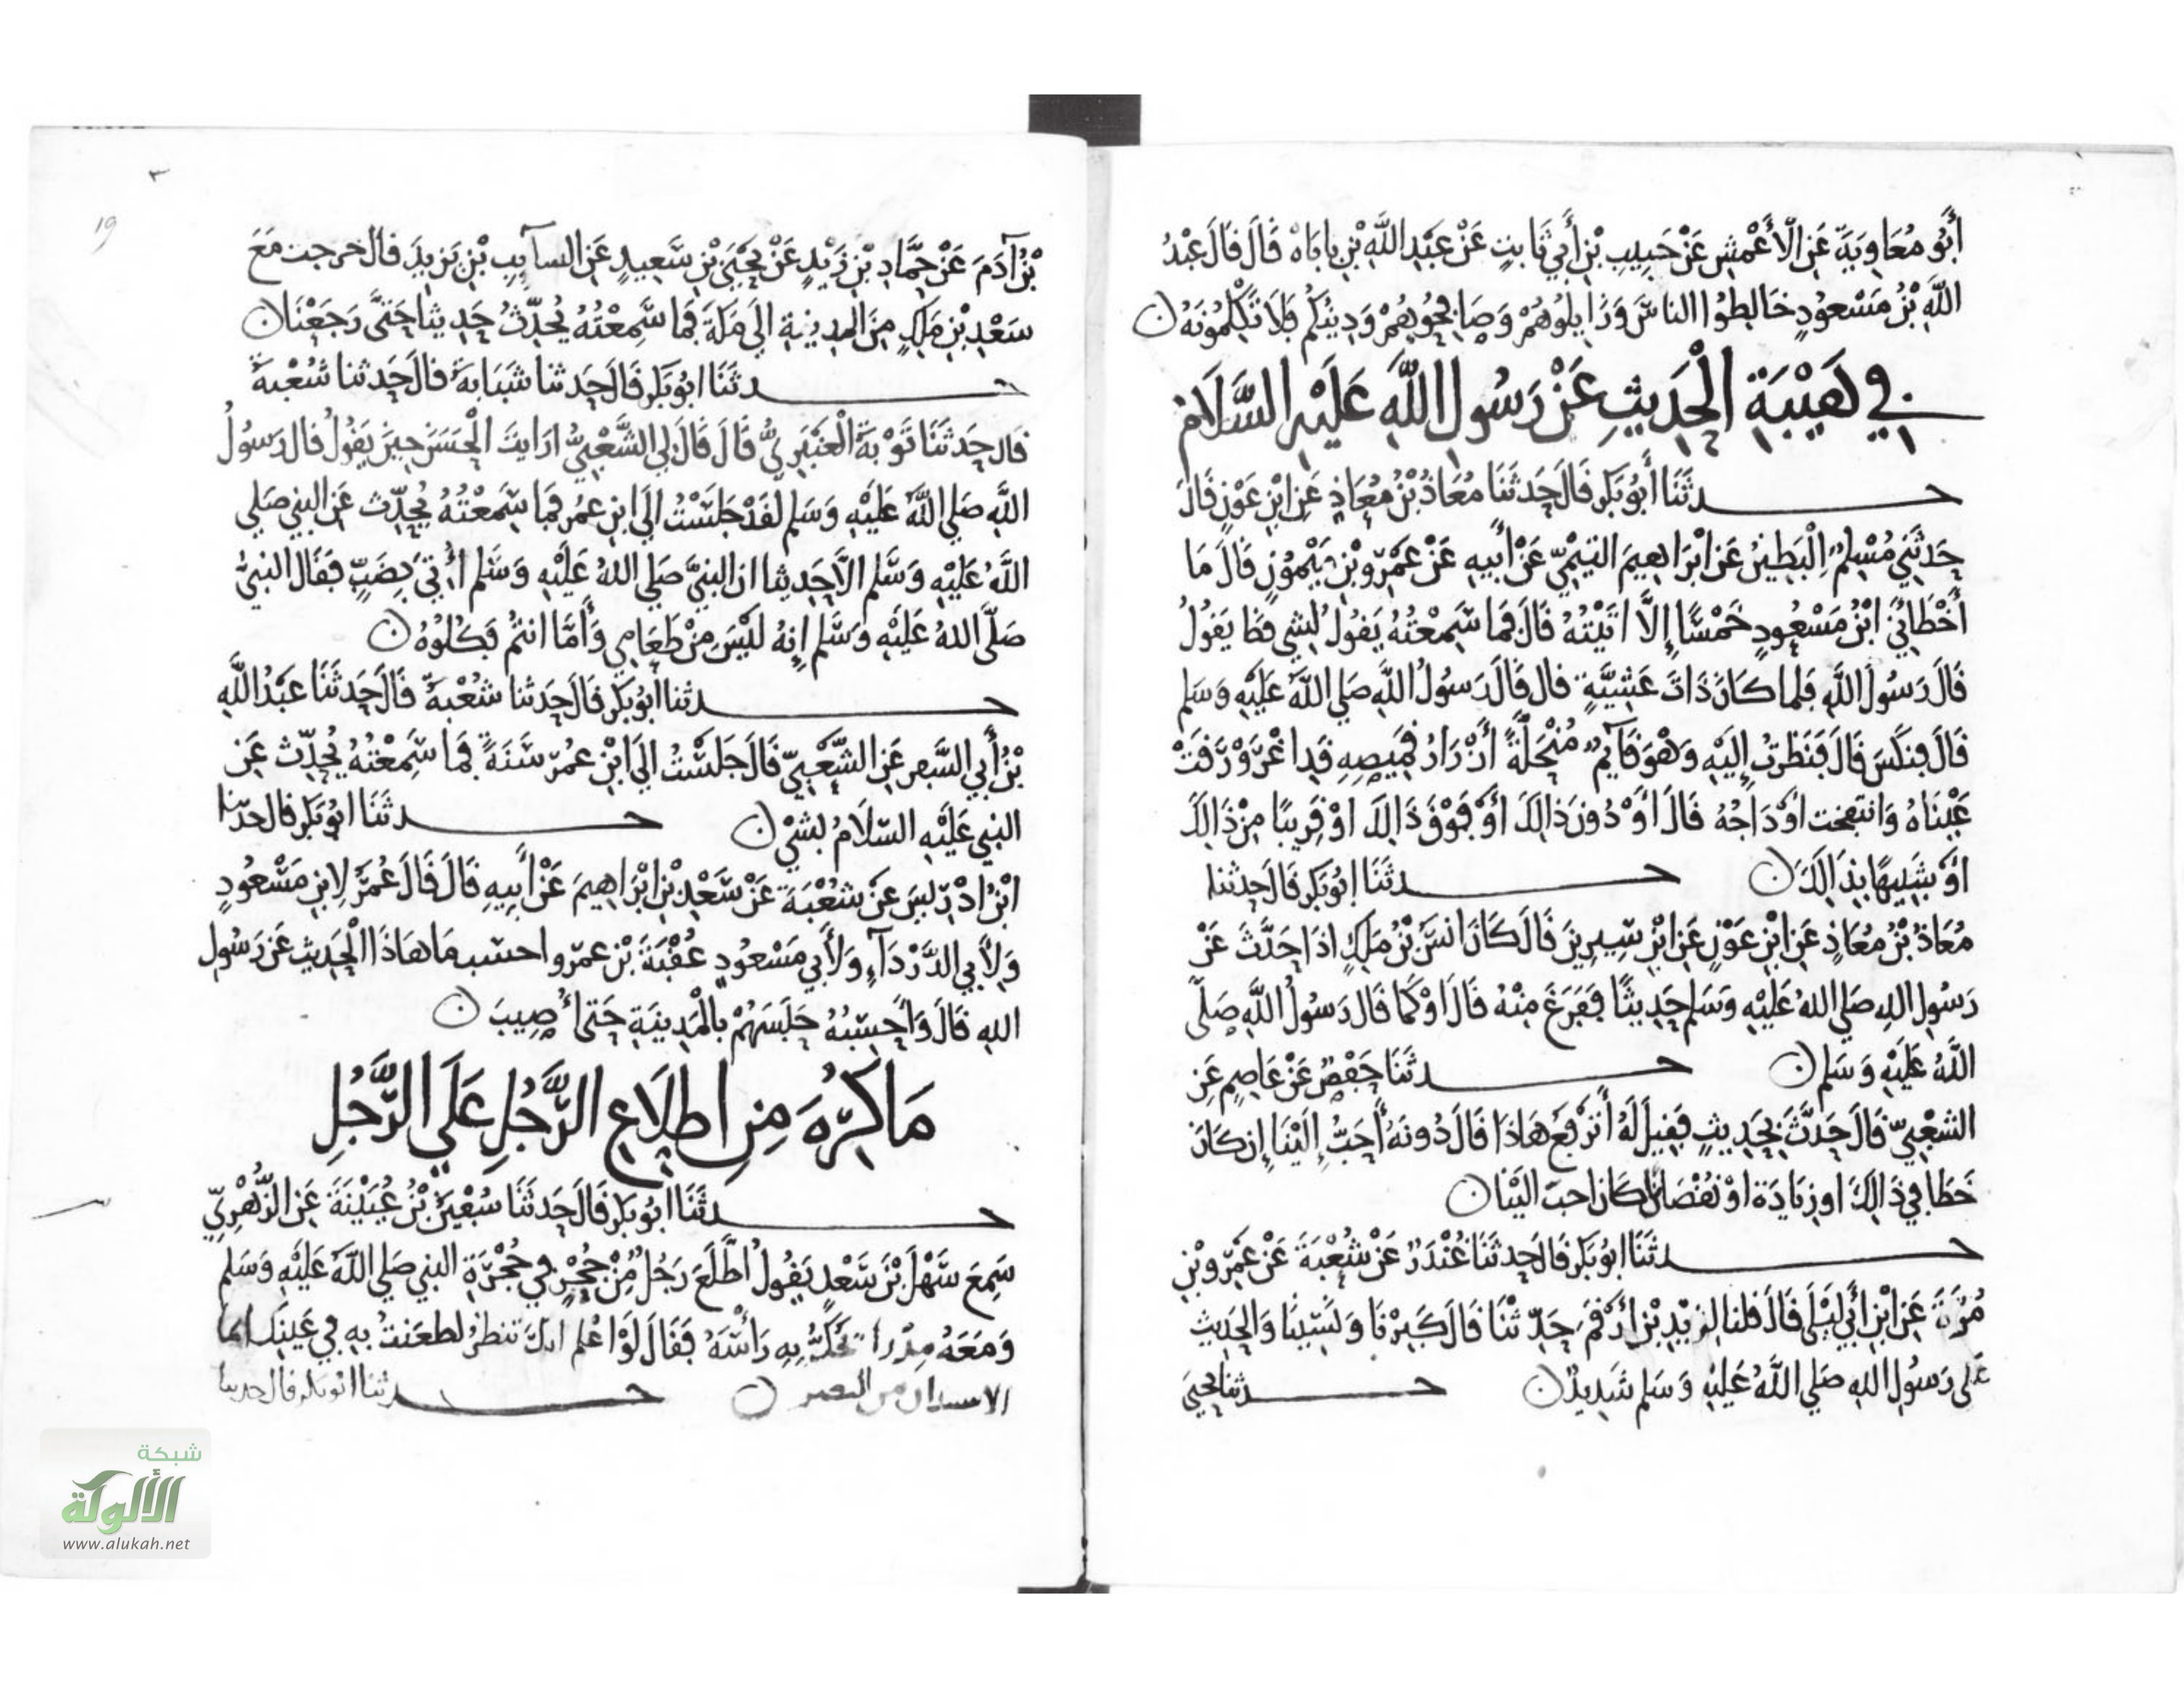 أبو معاوية عن الأعمش عن حبيب بن أبي ثابت عن عبد الله بن باباه قال قال عبد
الله بن مسعود خالطوا الناس وزايلوهم وصافحوهم ودينكم فلا تكلمونه
في هيبة الحديث عن رسول الله عليه السلام
حدثنا أبو بكر قال حدثنا معاذ بن معاذ عن ابن عون قال
حدثني مسلم البطين عن ابراهيم التيمي عن أبيه عن عمرو بن ميمون قال ما
أخطاني ابن مسعود خمسا إلا اتيته قال فما سمعته يقول لشي قط يقول
قال رسول الله فلما كان ذات عشية قال قال رسول الله صلي الله عليه وسلم
قال فنكس قال فنظرت إليه وهو قآيم منحلة أزرار قميصه قد اغرورقت
عيناه وانتفخت اوداجه قال أو دون ذالك أو فوق ذالك او قريبا من ذالك
أو شبيها بذالك حدثنا ابو بكر قال حدثنا
معاذ بن معاذ عن ابن عون عن ابن سيرين قال كان انس بن ملك اذا حدث عن
رسول الله صلي الله عليه وسلم حديثا ففرغ منه قال او كما قال رسول الله صلى
الله عليه وسلم حدثنا حفص عن عاصم عن
الشعبي قال حدث بحديث فقيل له أترفع هاذا قال دونه أحب إلينا إن كان
خطا في ذالك او زيادة او نقصان كان احب الينا
حدثنا ابو بكر قال حدثنا غندر عن شعبة عن عمرو بن
مرة عن ابن أبي ليلى قال قلنا لزيد بن أرقم حدثنا قال كبرنا ونسينا والحديث
على رسول الله صلي الله عليه وسلم شديد حدثنا يحيى
٣
19
بن آدم عن حماد بن زيد عن يحيى بن سعيد عن السآيب بن يزيد قال خرجت مع
سعد بن ملك من المدينة الي مكة فما سمعته يحدث حديثا حتى رجعنا
حدثنا ابو بكر قال حدثنا شبابة قال حدثنا شعبة
قال حدثنا توبة العنبري قال قال لي الشعبي ارايت الحسن حين يقول قال رسول
الله صلي الله عليه وسلم لقد جلست الى ابن عمر فما سمعته يحدث عن النبي صلي
الله عليه وسلم الا حديثا ان النبي صلي الله عليه وسلم أتي بضب فقال النبي
صلى الله عليه وسلم إنه ليس من طعامي وأما انتم فكلوه
حدثنا أبو بكر قال حدثنا شعبة قال حدثنا عبد الله
بن أبي السفر عن الشعبي قال جلست الى ابن عمر سنة فما سمعته يحدث عن
النبي عليه السلام بشي حدثنا ابو بكر قال حدثنا
ابن ادريس عن شعبة عن سعد بن ابراهيم عن أبيه قال قال عمر لابن مسعود
ولأبي الدردآء ولأبي مسعود عقبة بن عمرو احسب ما هاذا الحديث عن رسول
الله قال وأحسبه حبسهم بالمدينة حتى أصيب
ما كره من اطلاع الرجل على الرجل
حدثنا ابو بكر قال حدثنا سفين بن عيينة عن الزهري
سمع سهل بن سعد يقول اطلع رجل من جحر في حجرة النبي صلي الله عليه وسلم
ومعه مدرا يحك به رأسه فقال لو اعلم انك تنظر لطعنت به في عينك انما
الاستيذان من البصر حدثنا ابو بكر قال حدثنا
شبكة
الألوكة
www.alukah.net